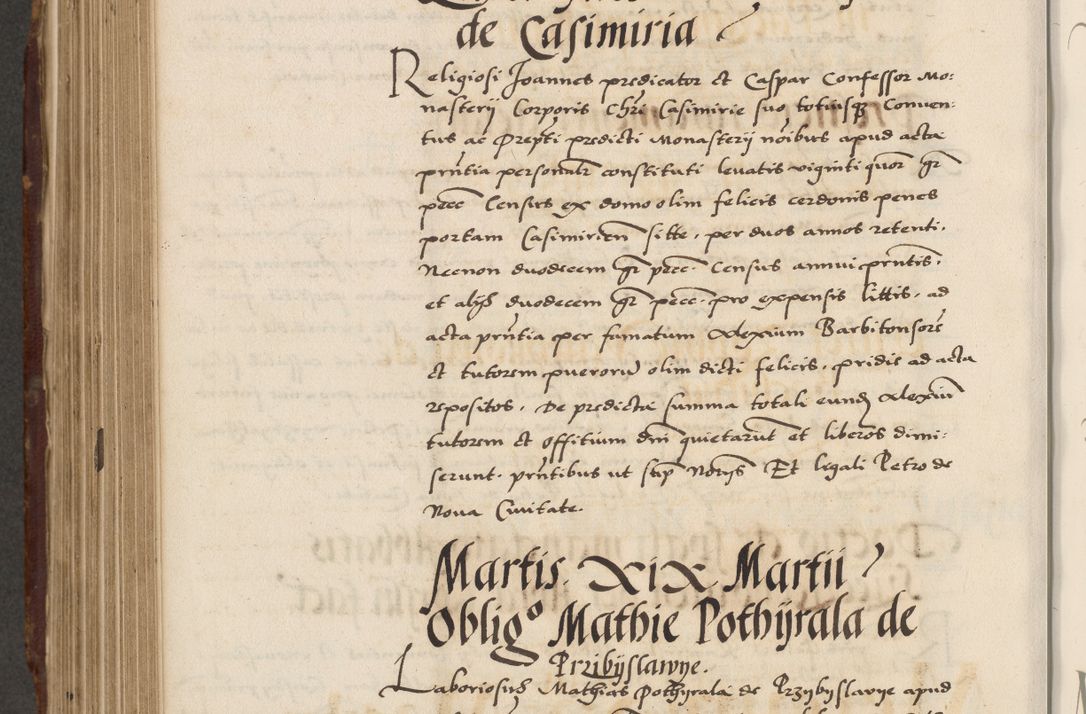 de Casimiria
Religiosi Joannes predicator et Caspar Confessor Mo:
nasterij Corporis Chri Casimirie suo totiusq Conven:
tus ac Prepti predicti Monasterij noibus apud acta
pñtia personalr constituti levatis viginti quor gr
pecc Census ex domo olim felicis cerdonis penes
portam Casimirien sitte, per duos annos retenti,
Necnon duodecem gr pecc. Census annui pñtis,
et alijs duodecem gr pecc. pro expensis littis, ad
acta pñtia per famatum Alexium Barbitonsore
et tutorem pueroru olim dicti felicis, pridie ad acta
repositos, De predicta summa totali eund Alexiu
tutorem et offitium dni quietarut et liberos dimi:
serunt. pñtibus ut sup Notrijs Et legali Petro de
Nova Civitate.
Martis XIX Martii
Obligo Mathie Pothyrala de
Przibyslawye.
Laboriosus Mathias Pothyrala de Przybyslavye apud